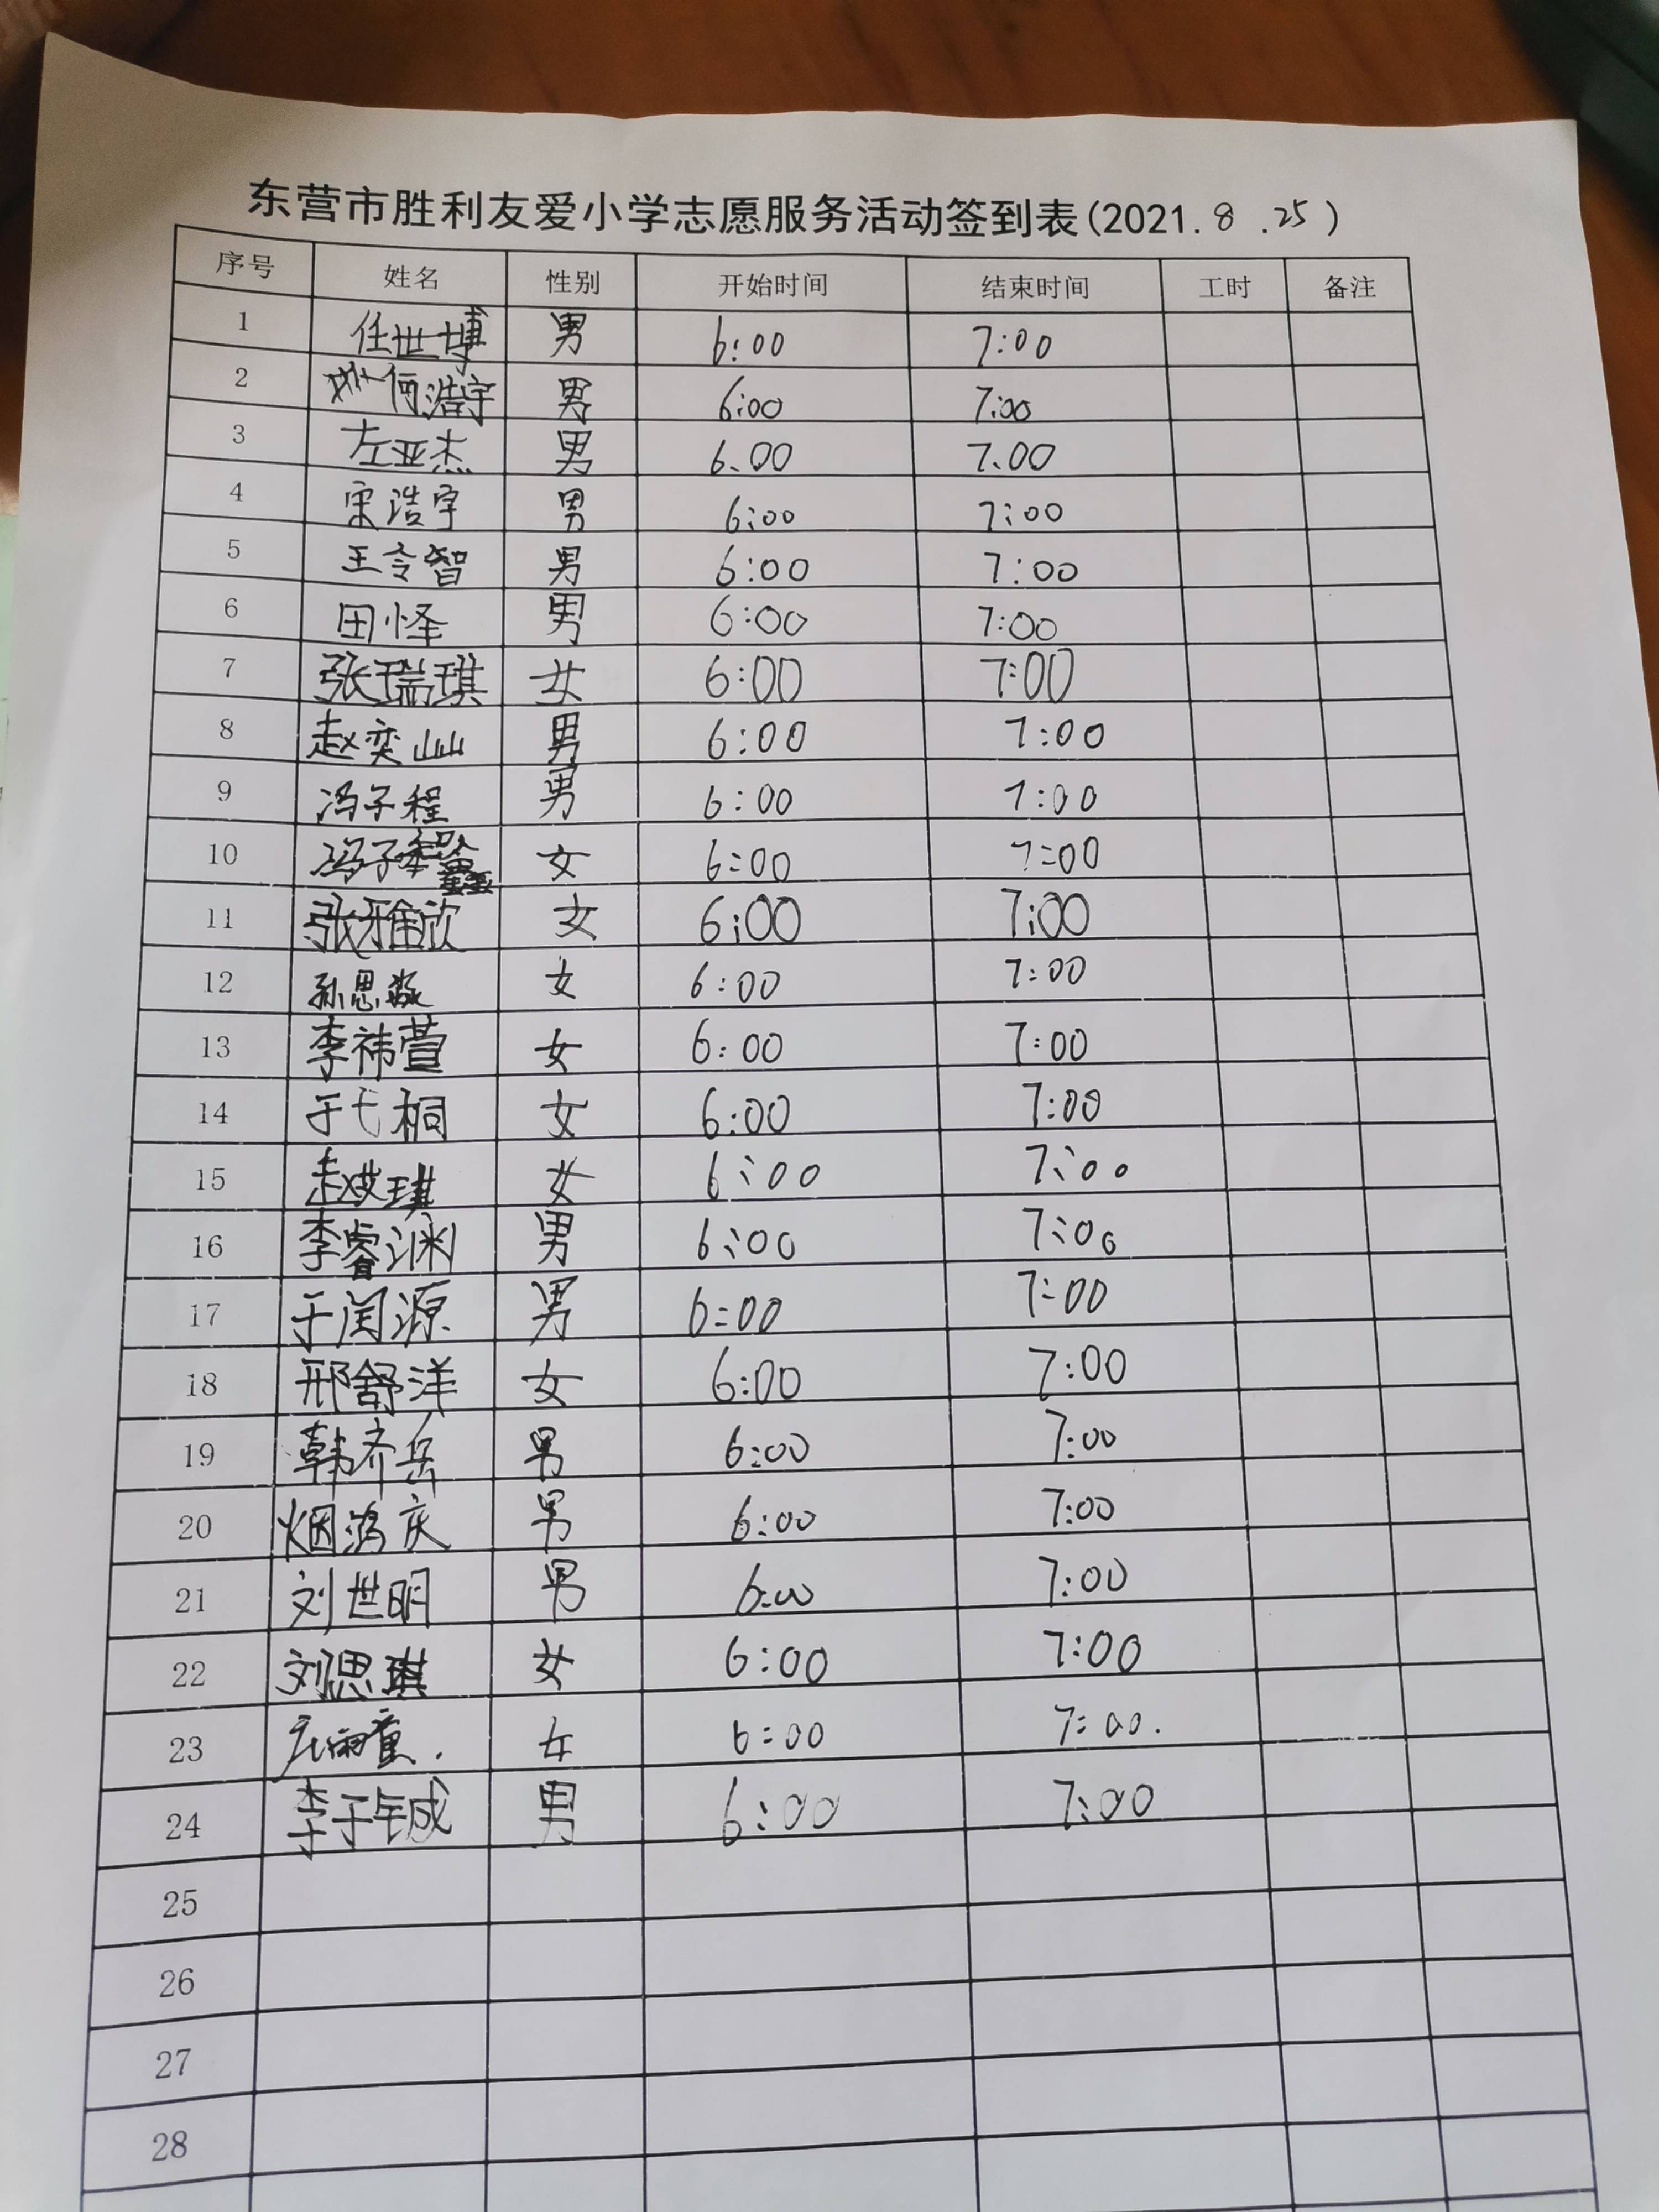 东营市胜利友爱小学志愿服务活动签到表(2021.8.25)
序号 姓名 性别 开始时间 结束时间 工时 备注
1 任世博 男 6:00 7:00
2 何浩宇 男 6:00 7:00
3 左亚杰 男 6.00 7.00
4 宋浩宇 男 6:00 7:00
5 王令智 男 6:00 7:00
6 田怿 男 6:00 7:00
7 张瑞琪 女 6:00 7:00
8 赵奕 男 6:00 7:00
9 冯子程 男 6:00 7:00
10 冯子 女 6:00 7:00
11 张雅欣 女 6:00 7:00
12 孙思淼 女 6:00 7:00
13 李祎萱 女 6:00 7:00
14 于弋桐 女 6:00 7:00
15 赵艾琪 女 6:00 7:00
16 李睿渊 男 6:00 7:00
17 于闰源 男 6:00 7:00
18 邢舒洋 女 6:00 7:00
19 韩齐岳 男 6:00 7:00
20 烟鸿庆 男 6:00 7:00
21 刘世明 男 6:00 7:00
22 刘思琪 女 6:00 7:00
23 雨童. 女 6:00 7:00.
24 李于铖 男 6:00 7:00
25
26
27
28